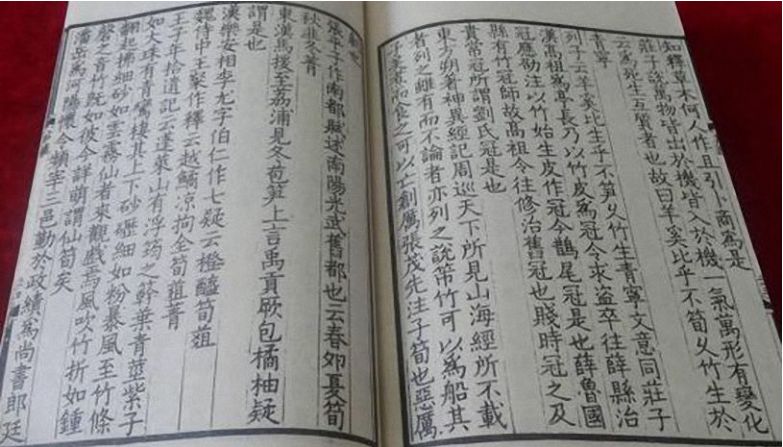 知釋草本何人作且引卜商為是
莊子談萬物皆出於機皆入於機一氣萬形有變化
云為死生互質者也故曰羊奚比乎不筍久竹生於
青寧
列子云羊奚比生乎不筍久竹生青寧文意同莊子
漢高祖為亭長乃以竹皮為冠令求盜卒往薛縣治
冠應劭注以竹始生皮作冠今鵲尾冠是也薛魯國
縣有竹冠師故高祖令往修治舊冠也賤時冠之及
貴常冠所謂劉氏冠是也
東方朔著神異經記周巡天下所見山海經所不載
者列之雖有而不論者亦列之說箒竹可以為船其
子美煮而食之可以亡創厲張茂先注子筍也惡厲
創也
張平子作南都賦述南陽光武舊都也云春卵夏筍
秋韭冬菁
東漢馬援至荔浦見冬苞筍上言禹貢厥包橘柚疑
謂是也
漢樂安相李尤字伯仁作七疑云橙醯筍葅
魏侍中王粲作釋云越鱊凉拘全筍葅菁
王子年拾遺記云蓬萊山有浮筠之簳葉青莖紫子
如大珠有青鸞棲其上下砂礰細如粉暴風至竹條
翻起拂細砂如雲霧仙者來觀戲焉風吹竹折如鍾
磬之音竹既如彼今詳萌謂仙筍矣
潘岳為河陽懷令頻宰二邑勤於政績為尚書郎廷